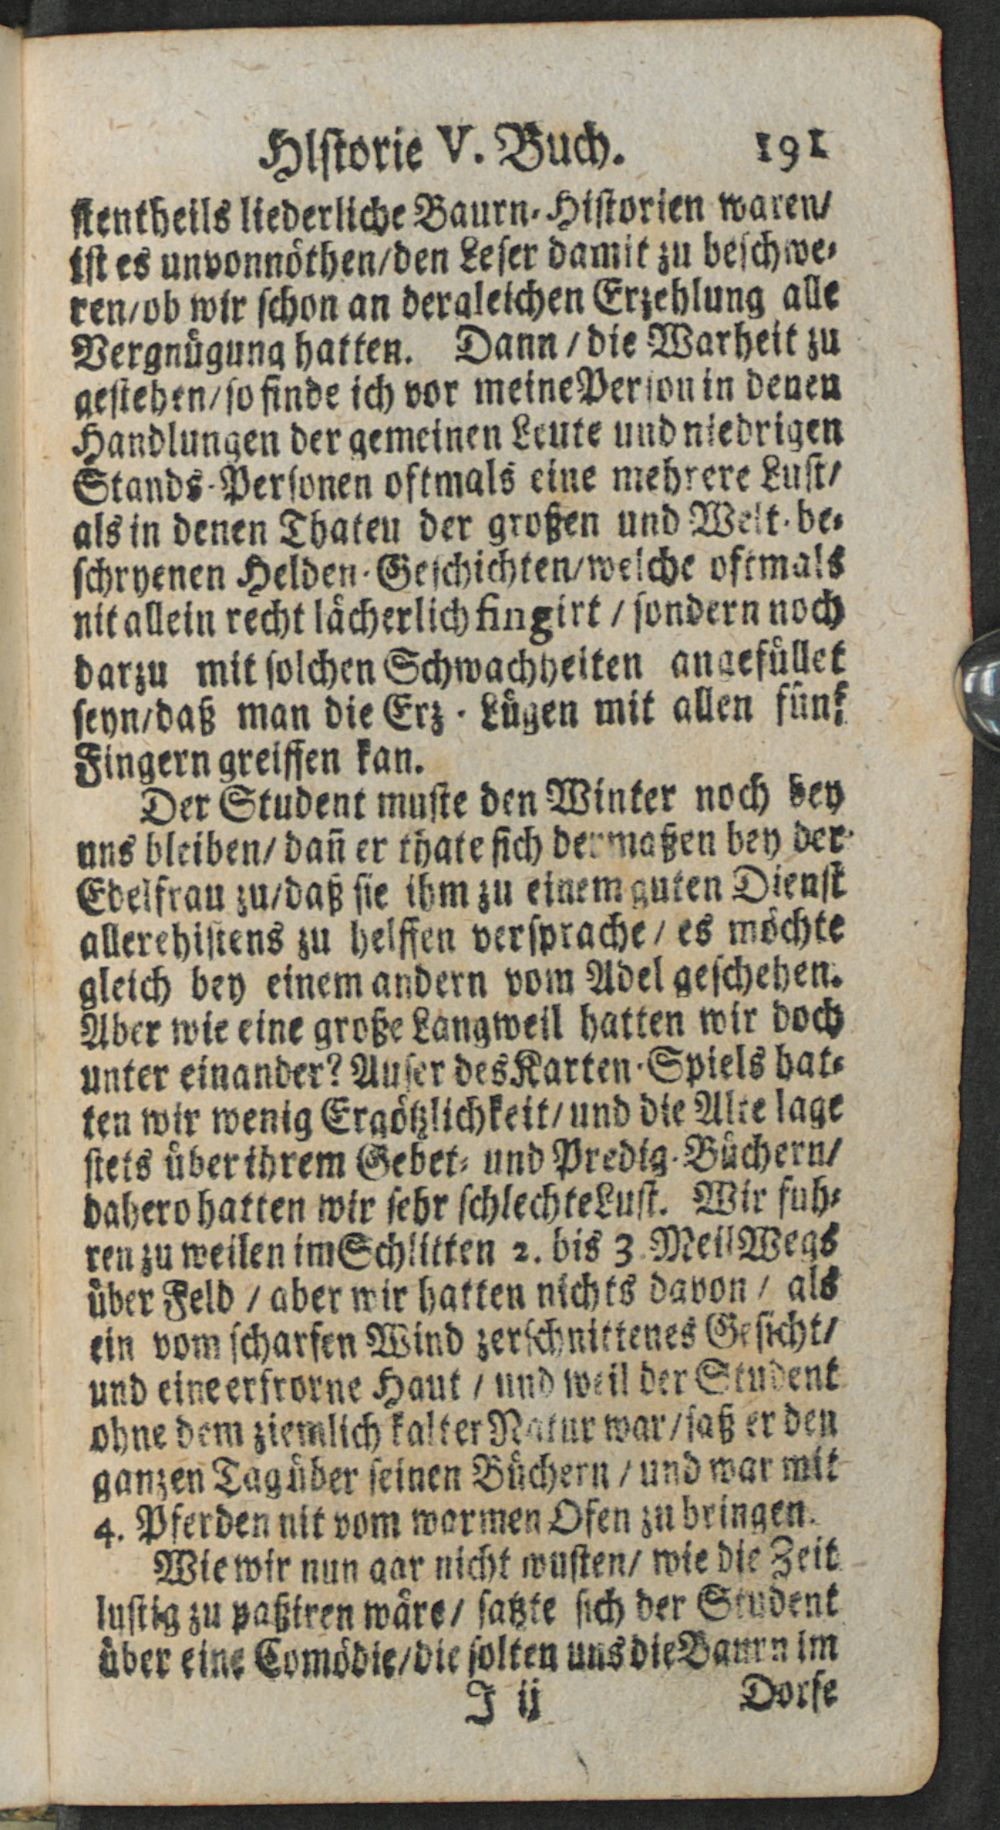 HIstorie V. Buch. 191
stentheils liederliche Baurn-Historien waren/
ist es unvonnöthen/den Leser damit zu beschwe-
ren/ob wir schon an dergleichen Erzehlung alle
Vergnügung hatten. Dann / die Warheit zu
gestehen/so finde ich vor meine Person in denen
Handlungen der gemeinen Leute und niedrigen
Stands-Personen oftmals eine mehrere Lust/
als in denen Thaten der großen und Welt-be-
schryenen Helden-Geschichten/welche oftmals
nit allein recht lächerlich fingirt / sondern noch
darzu mit solchen Schwachheiten angefüllet
seyn/daß man die Erz-Lügen mit allen fünf
Fingern greiffen kan.
Der Student muste den Winter noch bey
uns bleiben/ dañ er thate sich dermaßen bey der
Edelfrau zu/daß sie ihm zu einem guten Dienst
allerehistens zu helffen versprache / es möchte
gleich bey einem andern vom Adel geschehen.
Aber wie eine große Langweil hatten wir doch
unter einander? Auser des Karten-Spiels hat-
ten wir wenig Ergötzlichkeit/ und die Alte lage
stets über ihrem Gebet- und Predig-Büchern/
dahero hatten wir sehr schlechte Lust. Wir fuh-
ren zu weilen im Schlitten 2. bis 3 Meil Wegs
über Feld / aber wir hatten nichts davon / als
ein vom scharfen Wind zerschnittenes Gesicht/
und eine erfrorne Haut / und weil der Student
ohne dem ziemlich kalter Natur war/saß er den
ganzen Tag über seinen Büchern / und war mit
4. Pferden nit vom warmen Ofen zu bringen.
Wie wir nun gar nicht wusten/ wie die Zeit
lustig zu paßiren wäre / satzte sich der Student
über eine Comödie/die solten uns die Baurn im
J ij Dorfe